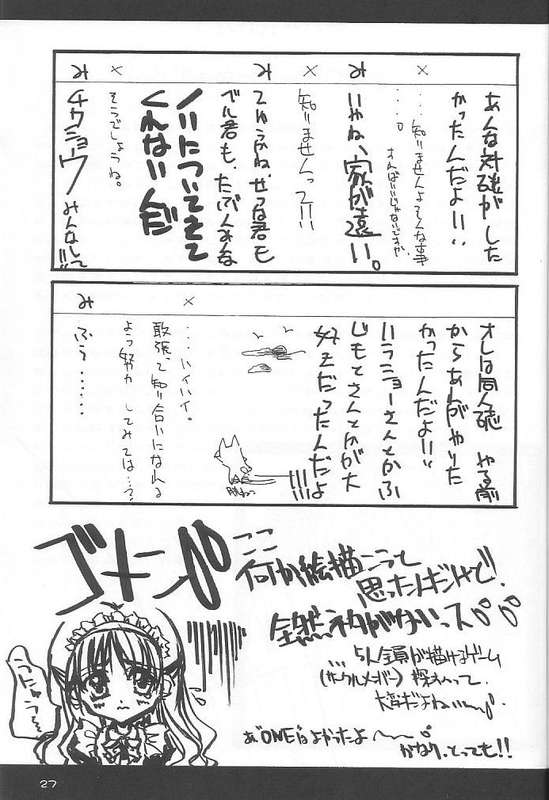 み
あんな対談がした
かったんだよ!!
×
・・・・知りませんよそんな事
・・・・。すればいいじゃないですか
み
いやね、家が遠い。
×
知りませんって!!
み
ていうかね、ぜっ君も
でル君も、たぶんみな
ノリについてきて
くれないんだ
×
そうでしょうね。
み
チクショウ みんなして!!
オレは同人誌 やる前
からあんがやりた
かったんだよ!!
ハラショーさんとかふ
じもとさんとかが大
好きだったんだよ
!!!!
×
・・・・ハイハイ。
頑張って知り合いになれる
よう努力 してみては…?
み
ふぅ・・・・・・
ここ
何か絵描こうって
思ったんだけど!
全然ネタがないっス
5人全員が描けるゲーム
(サークルメンバー) 探すって
大変だよね
あ゛ONEはよかったよ〜
かなり、とっても!!
うにゅう〜
27